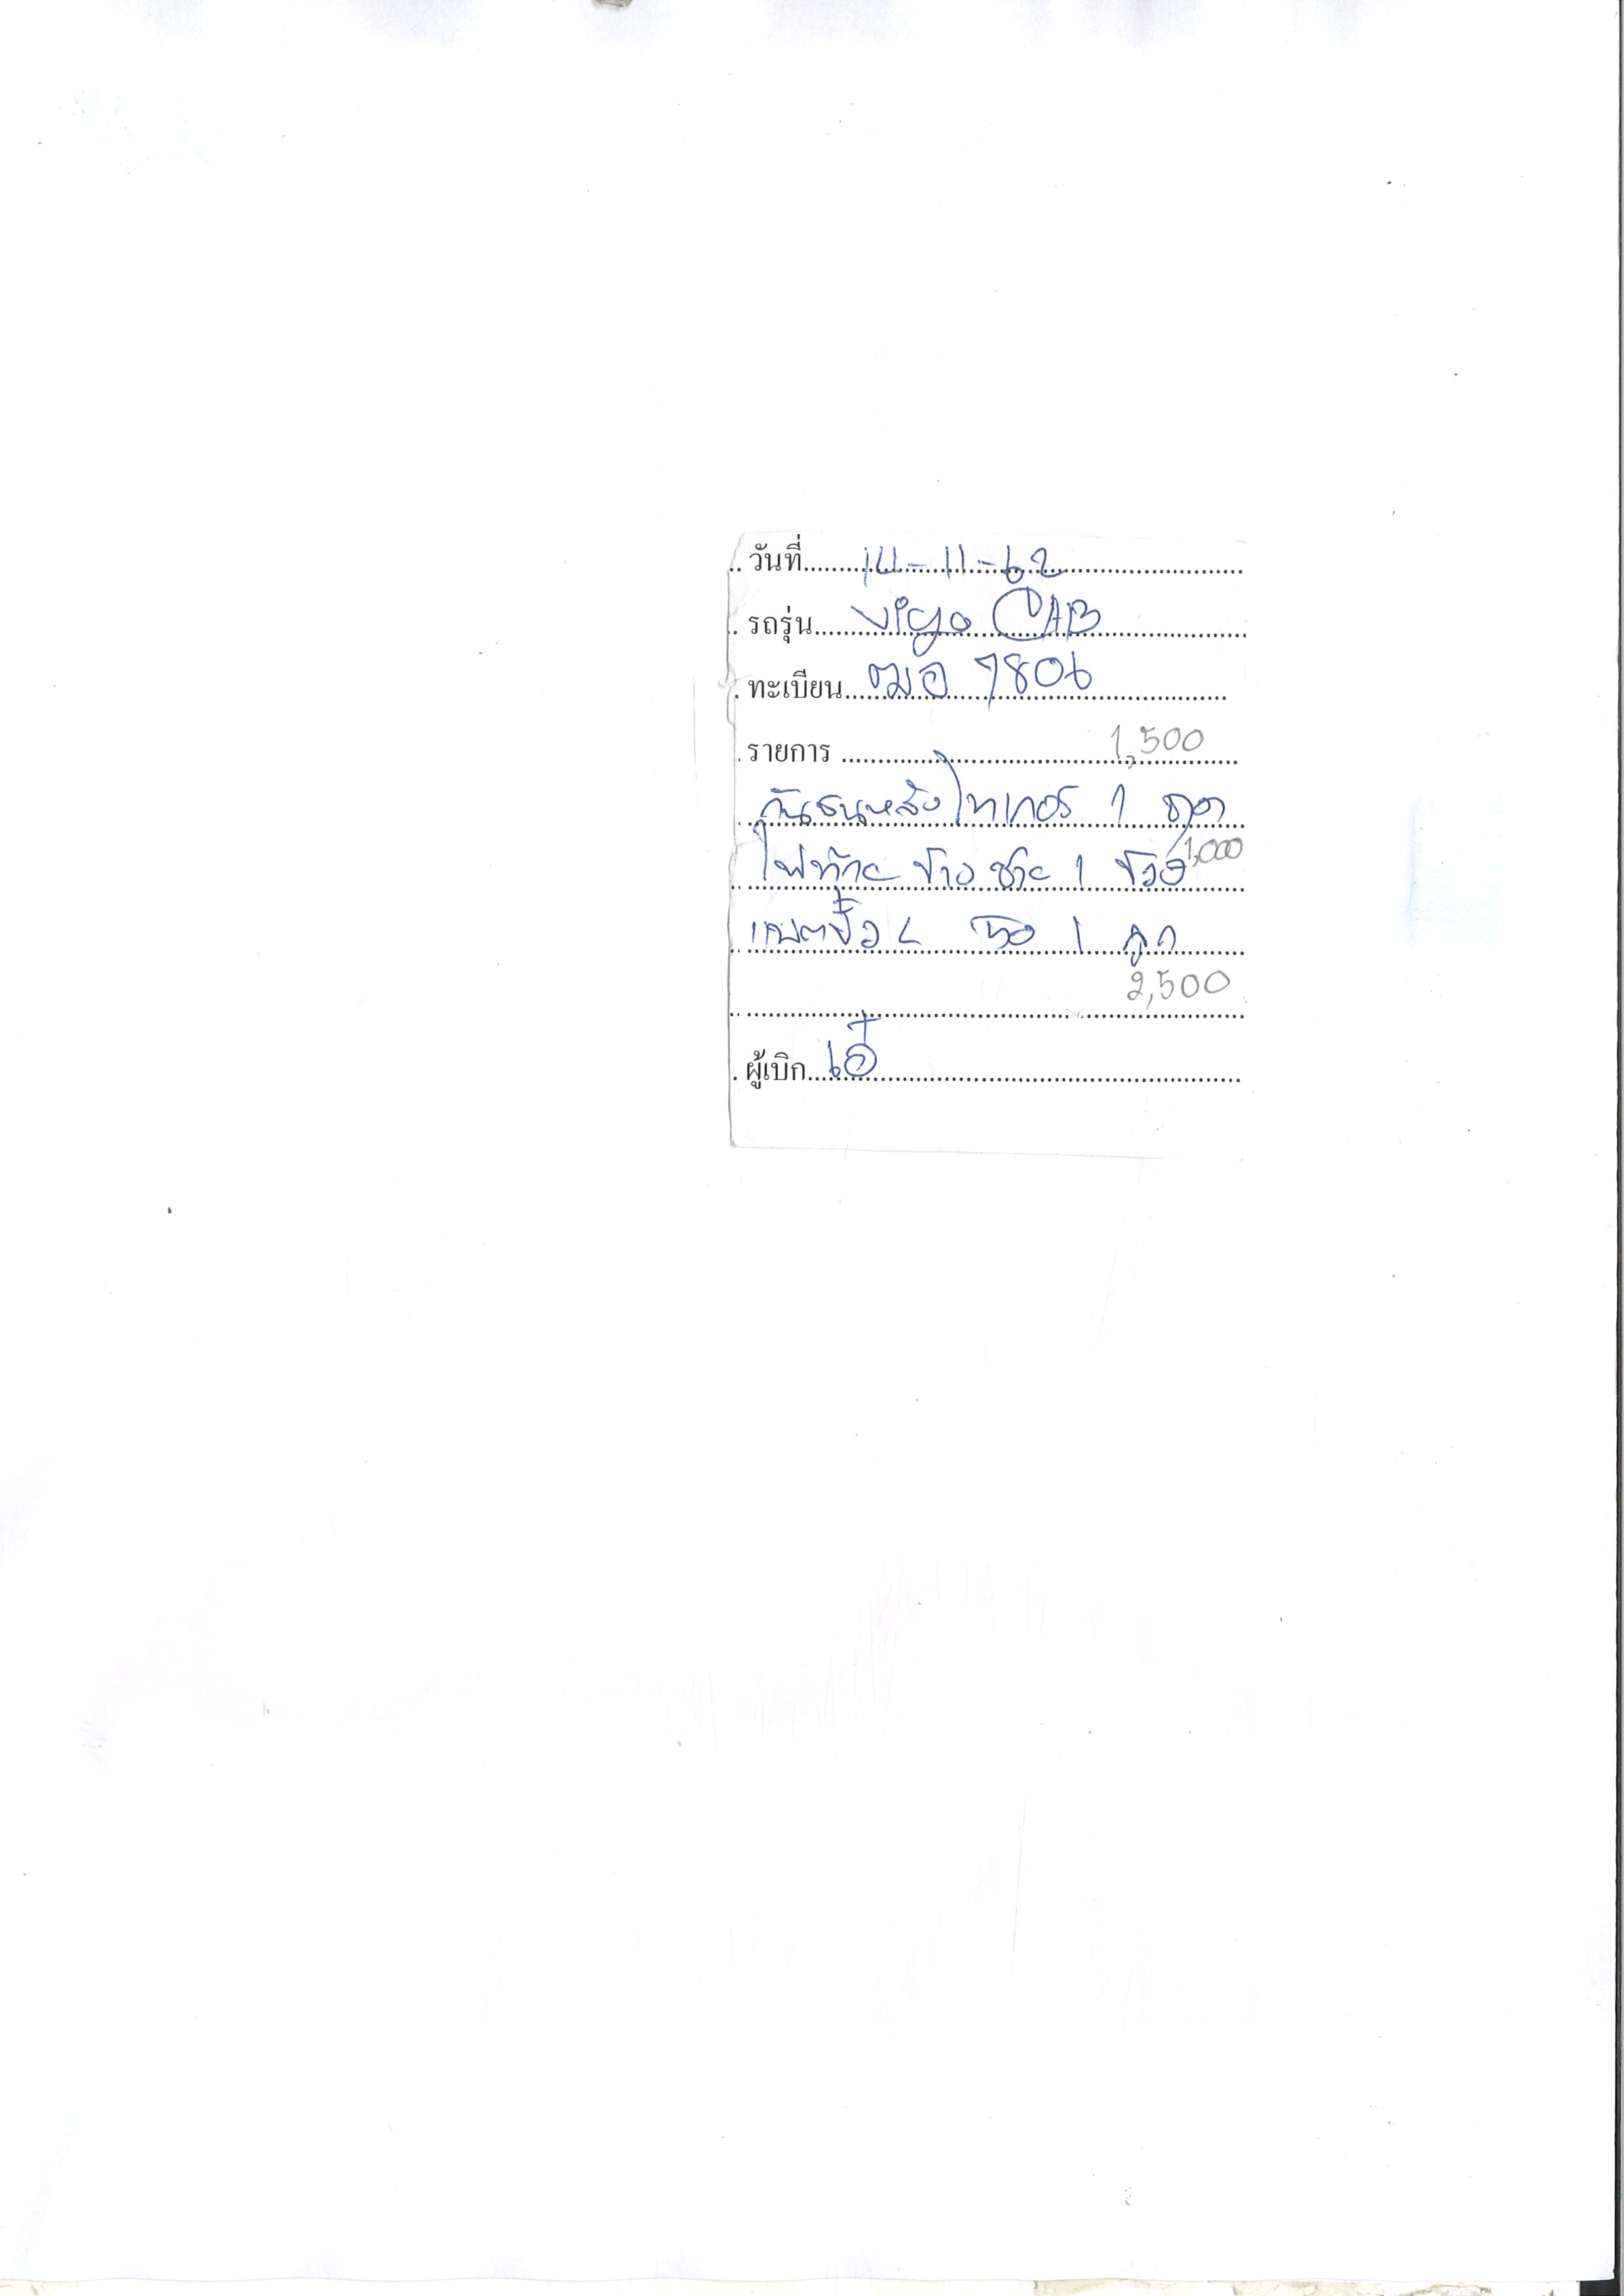 วันที่ 14-11-62
รถรุ่น vigo CAB
ทะเบียน ฒอ 7806
รายการ 1,500
กันชนหลังไทเกอร์ 1 ชุด
ไฟท้าย ข้างซ้าย 1 ข้าง 1,000
1 ลูก
2,500
ผู้เบิก เอ๋